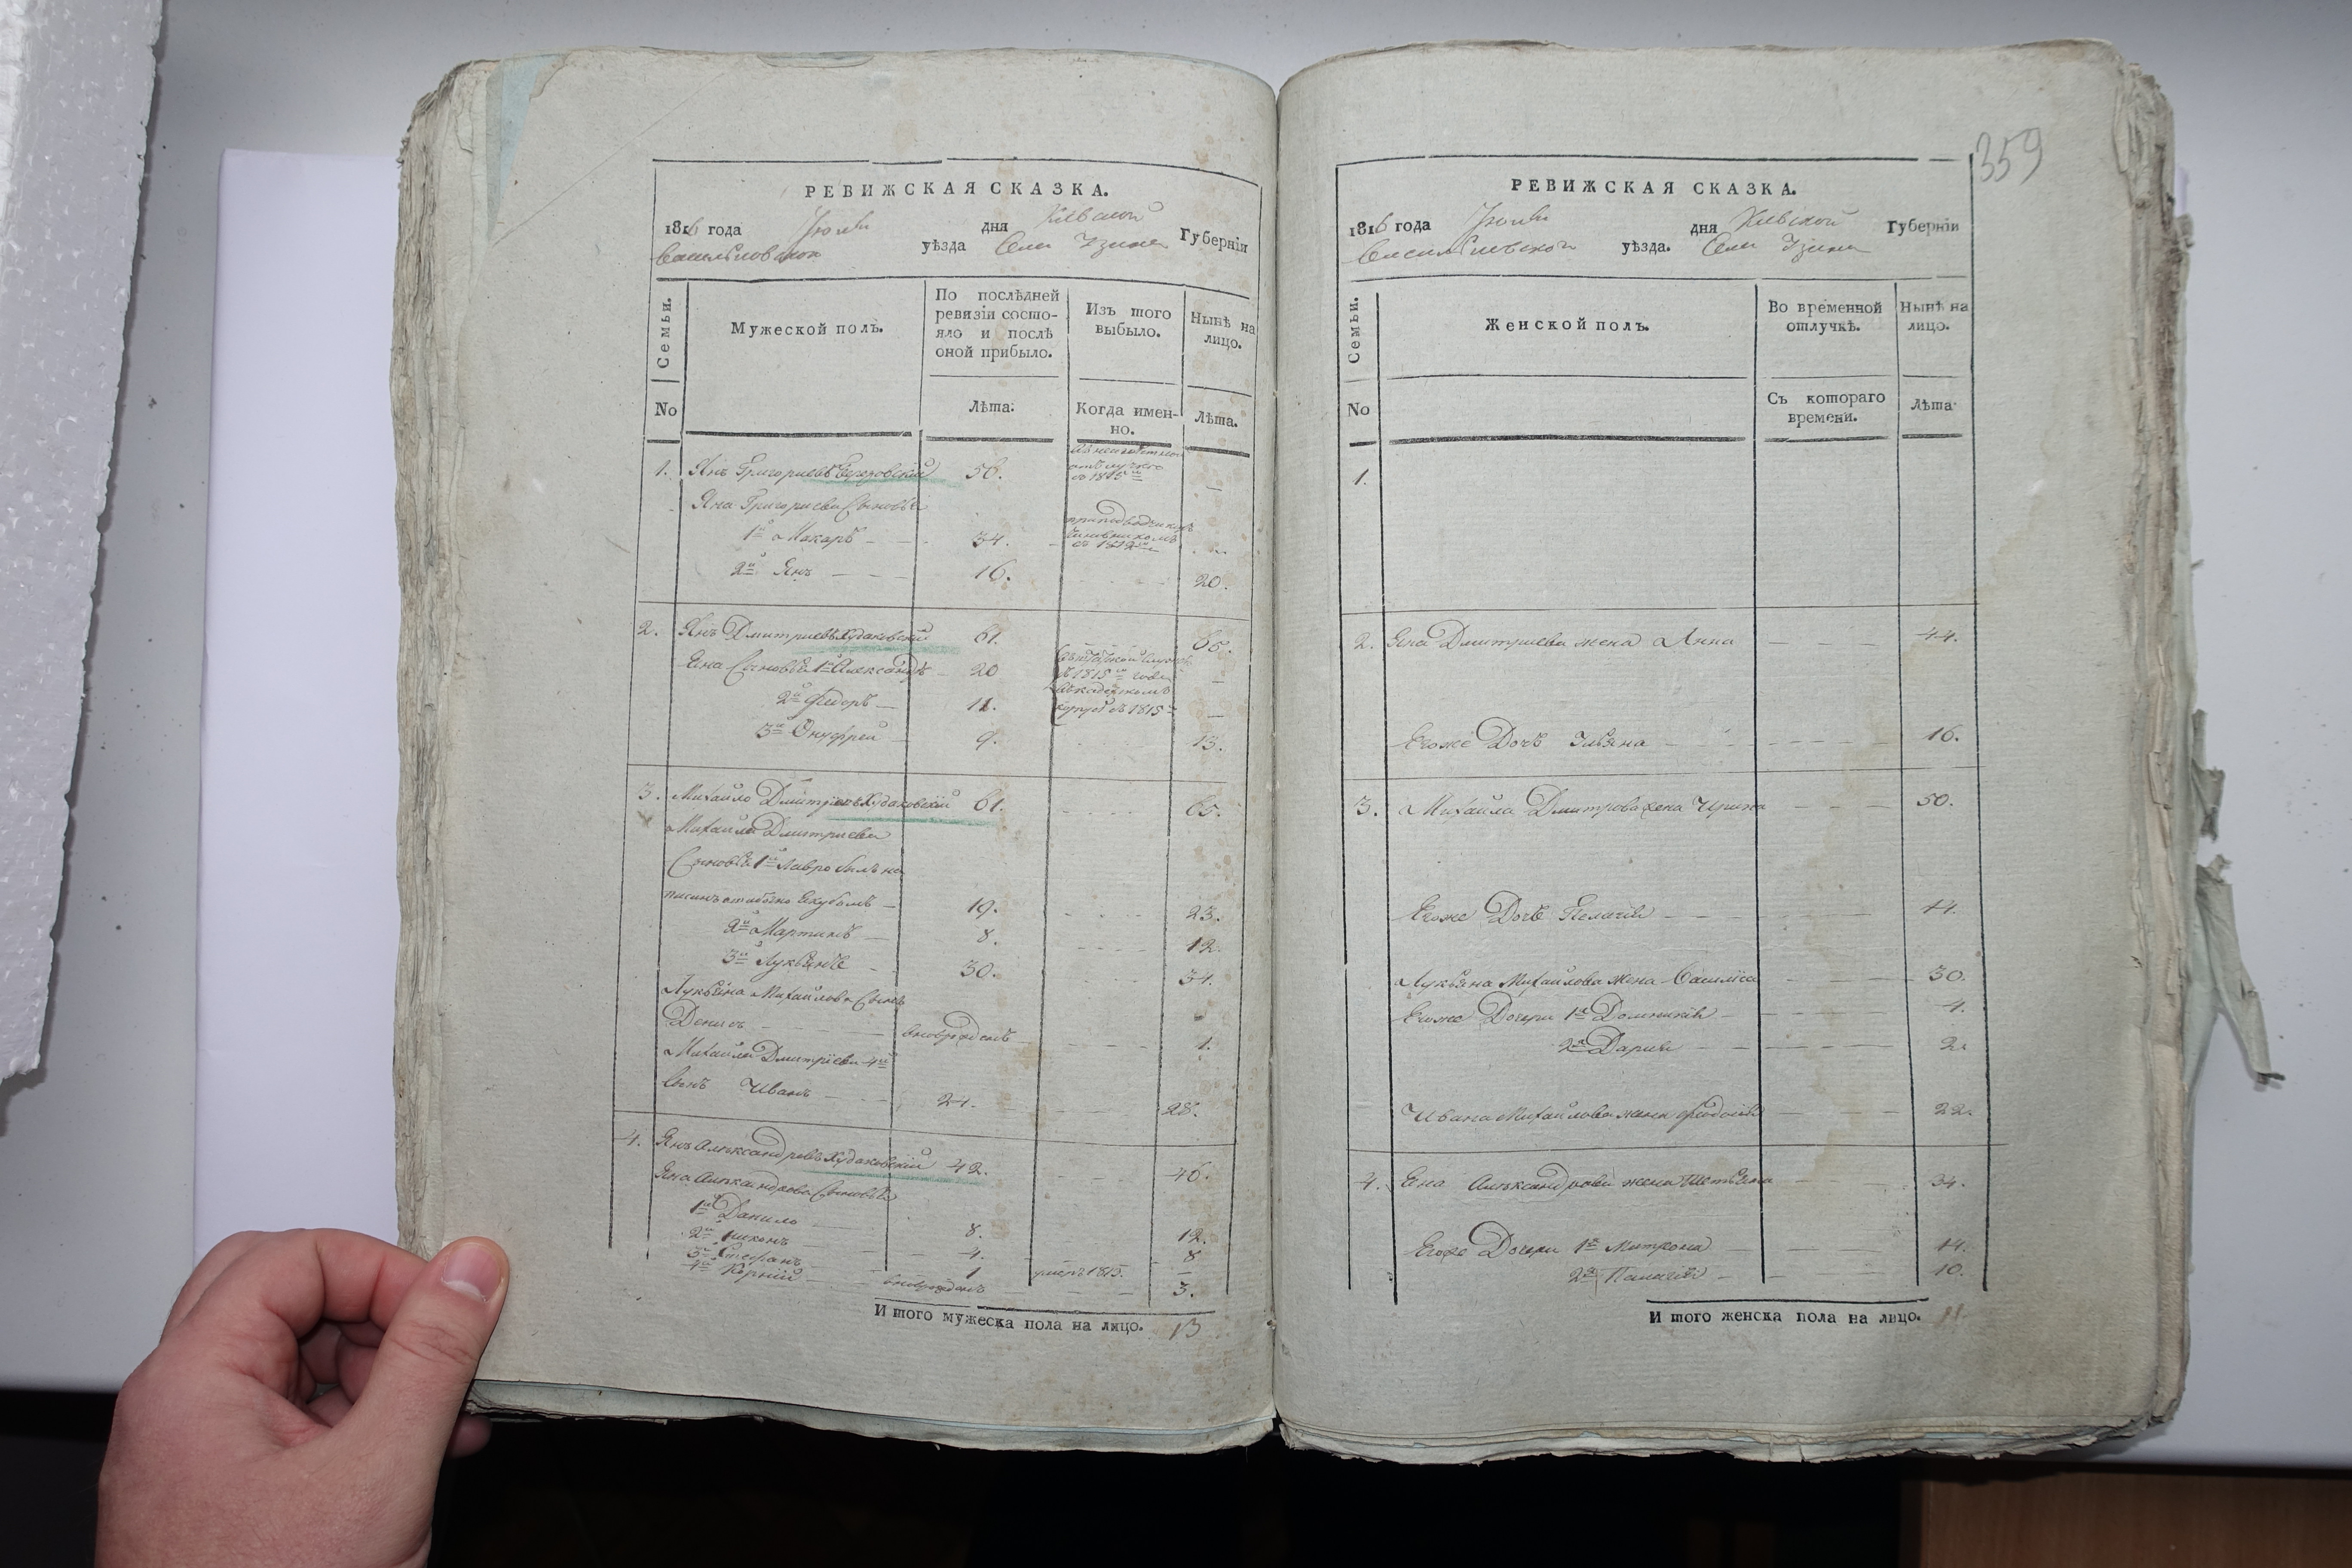 359
РЕВИЖСКАЯ СКАЗКА.
1816 года Июля дня Кіевской Губерніи
Васильковской уѣзда Села Узина
Семьи. Мужеской полъ. По послѣдней ревизіи состояло и послѣ оной прибыло. Изъ того выбыло. Нынѣ на лицо.
No Лѣта. Когда именно. Лѣта.
1. Янъ Григориевъ 56. —
съ 1815
Яна Григориева Сыновья
1й Макаръ 34.
съ 1812
2й Янъ 16. 20.
2. Янъ Дмитриевъ Худаковскій 61. 65.
Яна Сыновья 1й Александръ 20 —
въ 1815 года
2й Федоръ 11. —
корпусѣ съ 1815
3й Онуфрей 9. 13.
3. Михайло Дмитриевъ Худаковскій 61. 65.
Михайла Дмитриева
Сыновья 1й Лавро былъ на
писанъ ошибочно Якубомъ 19. 23.
2й Мартинъ 8. 12.
3й Лукьянъ 30. 34.
Лукьяна Михайлова Сынъ
Денисъ вновьрожденъ 1.
Михайла Дмитріева 4й
Сынъ Иванъ 24. 28.
4. Янъ Александровъ Худаковскій 42. 46.
Яна Александрова Сыновья
1й Данило 8. 12.
2й Никонъ 4. 8
3й Стефанъ 1 умеръ 1815. —
4й Корній вновьрожденъ 3.
Итого мужеска пола на лицо. 13
РЕВИЖСКАЯ СКАЗКА.
1816 года Июля дня Кіевской Губерніи
Васильковской уѣзда. Села Узина
Семьи. Женской полъ. Во временной отлучкѣ. Нынѣ на лицо.
No Съ котораго времени. Лѣта.
1.
2. Яна Дмитриева жена Анна 44.
Егоже Дочь Ульяна 16.
3. Михайла Дмитрова жена Ирина 50.
Егоже Дочь Пелагія 14.
Лукьяна Михайлова Жена Василиса 30.
Егоже Дочери 1я Домникія 4.
2я Дарія 2.
Ивана Михайлова жена Феодосія 22.
4. Яна Александрова жена Тетьяна 34.
Егоже Дочери 1я Митрона 14.
2я Палагія 10.
Итого женска пола на лицо. 11.